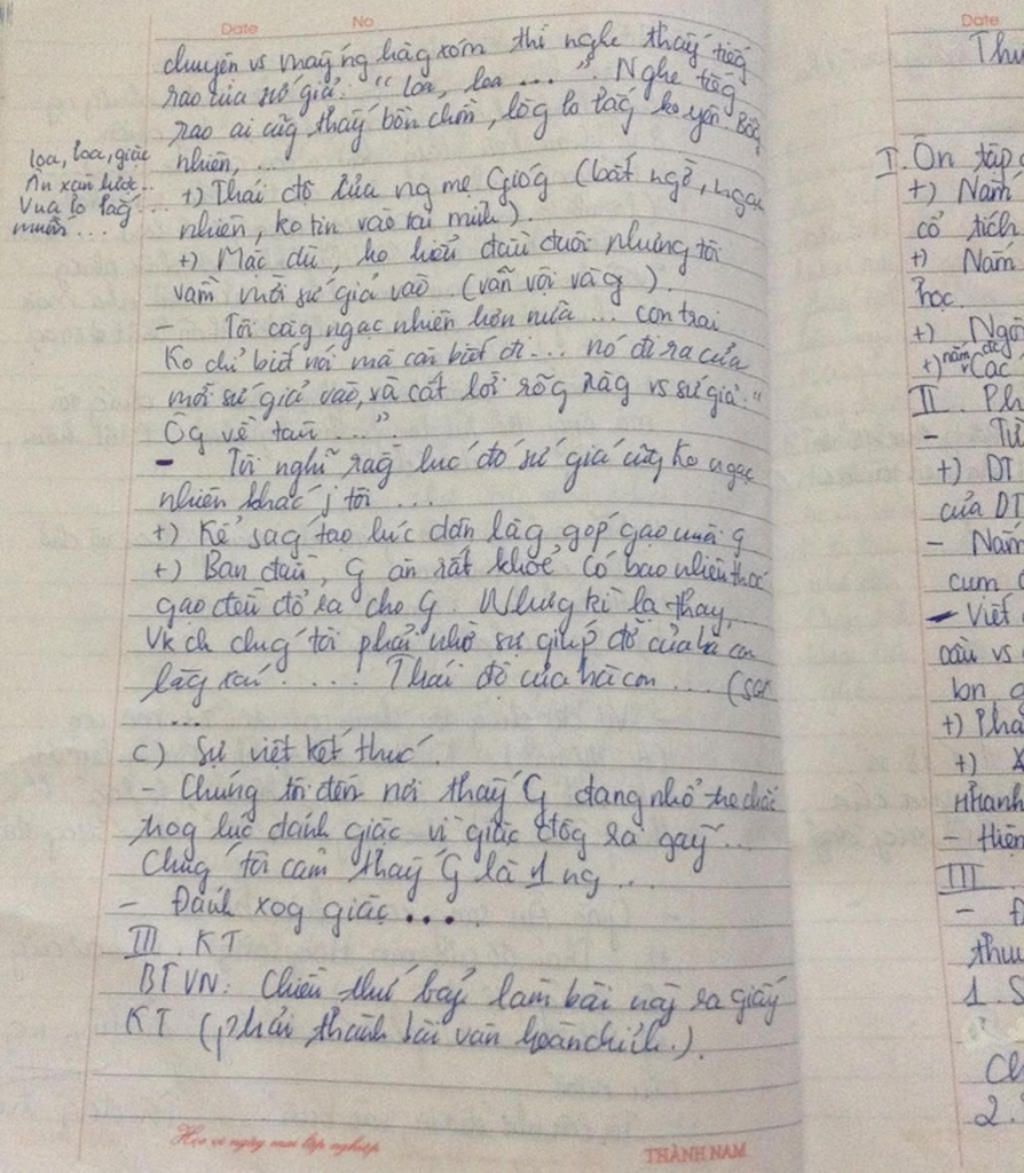 Date No
chuyện vs mấy ng hàg xóm thì nghe thấy tiếg
rao của sứ giả: " loa, loa ... ". Nghe tiếg
rao ai cũg thấy bồn chồn, lòg lo lắg ko yên. Bỗg
nhiên, ...
loa, loa, giặc
Ân xân lược...
Vua lo lắg ...
muốn ...
+) Thái độ của ng mẹ Gióg (bất ngờ, ngạc
nhiên, ko tin vào tai mình).
+) Mặc dù, ko hiểu đầu đuôi nhưng tôi
vẫn mời sứ giả vào. (vẫn vội vàg).
- Tôi càg ngạc nhiên hơn nữa ... con trai
Ko chỉ biết nói mà còn biết đi ... nó đi ra cửa
mời sứ giả vào, và cất lời rõg rạg vs sứ giả: "
Ôg về tâu ...".
- Tôi nghĩ rằg lúc đó sứ giả cũg ko ngạc
nhiên khác j tôi ...
+) Kểság tạo lúc dân làg góp gạo nuôi g
+) Ban đầu, G ăn rất khỏe. Có bao nhiêu thóc
gạo đều đổ ra cho G. Nhưg kì lạ thay,
Vk ck chúg tôi phải nhờ sự giúp đỡ của bà con
làg xá ..... Thái độ của bà con ... (sợ
...
c) Sự việt kết thúc.
- Chúng tôi đến nơi thấy G đang nhổ tre chắc
trog lúc đánh giặc vì giặc đôg ra gãy ...
Chúg tôi cảm thấy G là 1 ng ...
- Đánh xog giặc ...
III. KT
BTVN: Chiều thứ bảy làm bài này ra giấy
KT (phải thành bài văn hoàn chỉnh.).
Học vì ngày mai lập nghiệp THÀNH NAM
Date
Thu
I. Ôn tập
+) Nắm
cổ tích
+) Nắm
học.
+) Ngô
+) nắm đc Các
II. Ph
- Từ
+) DT
của DT
- Nắm
cum
- Viết
câu vs
lọn g
+) Phá
+)
nhanh
- Hiện
III
- Đ
thu
1. S
Ch
2.